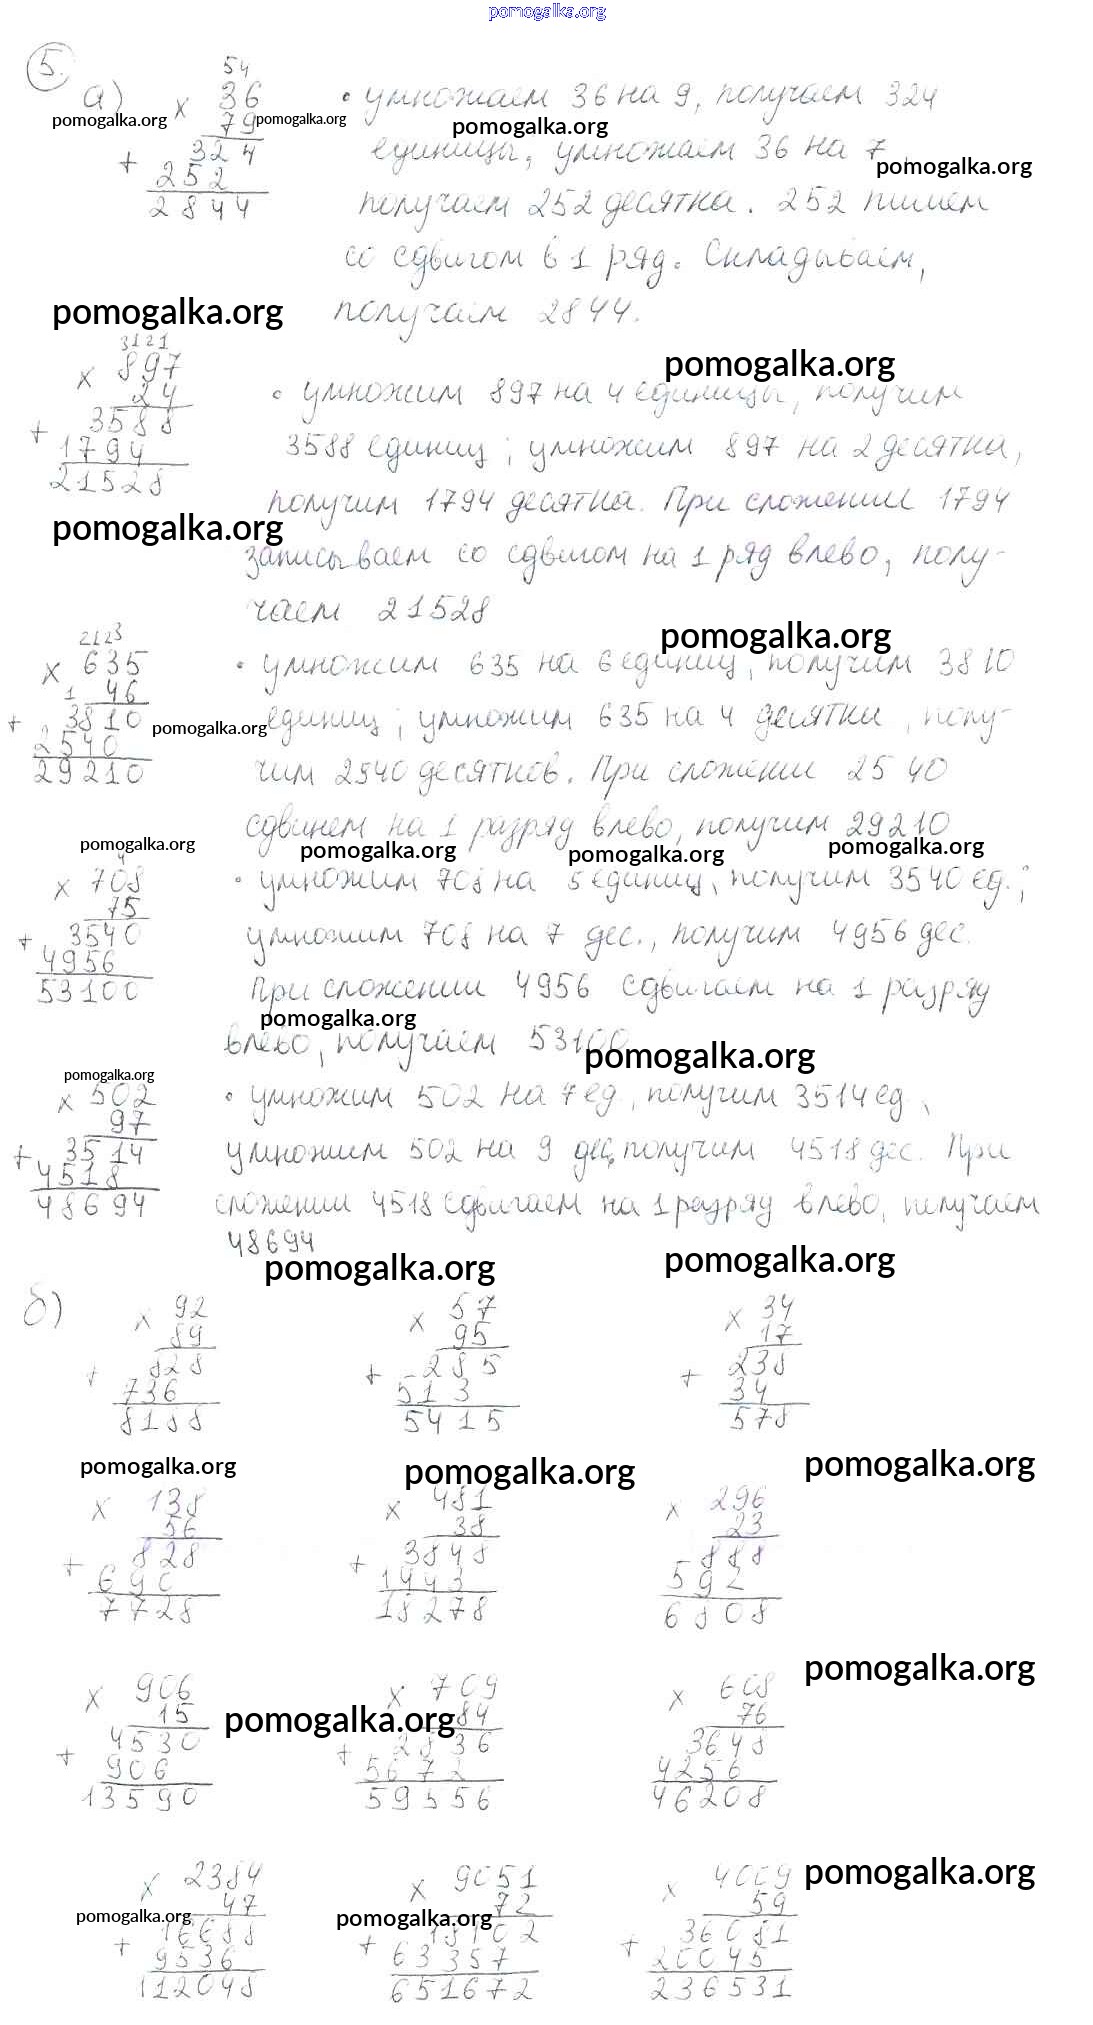 pomogalka.org
5.
а)
54
× 36
79
+ 324
252
2844
• умножаем 36 на 9, получаем 324
единицы, умножаем 36 на 7
получаем 252 десятка. 252 пишем
со сдвигом в 1 ряд. Складываем,
получаем 2844.
pomogalka.org
pomogalka.org
pomogalka.org
pomogalka.org
pomogalka.org
3121
× 897
24
+ 3588
1794
21528
pomogalka.org
• умножим 897 на 4 единицы, получим
3588 единиц; умножим 897 на 2 десятка,
получим 1794 десятка. При сложении 1794
записываем со сдвигом на 1 ряд влево, полу-
чаем 21528
pomogalka.org
pomogalka.org
2123
× 635
1 46
+ 3810
2540
29210
• умножим 635 на 6 единиц, получим 3810
единиц; умножим 635 на 4 десятки, полу-
чим 2540 десятков. При сложении 2540
сдвинем на 1 разряд влево, получим 29210
pomogalka.org
pomogalka.org
pomogalka.org
pomogalka.org
pomogalka.org
4
× 708
75
+ 3540
4956
53100
• умножим 708 на 5 единиц, получим 3540 ед.;
умножим 708 на 7 дес., получим 4956 дес.
При сложении 4956 сдвигаем на 1 разряд
влево, получаем 53100
pomogalka.org
pomogalka.org
pomogalka.org
× 502
97
+ 3514
4518
48694
• умножим 502 на 7 ед, получим 3514 ед,
умножим 502 на 9 дес, получим 4518 дес. При
сложении 4518 сдвигаем на 1 разряд влево, получаем
48694
pomogalka.org
pomogalka.org
б)
× 92
89
+ 828
736
8188
× 57
95
+ 285
513
5415
× 34
17
+ 238
34
578
pomogalka.org
pomogalka.org
pomogalka.org
× 138
56
+ 828
690
7728
× 481
38
+ 3848
1443
18278
× 296
23
888
592
6808
pomogalka.org
pomogalka.org
× 906
15
+ 4530
906
13590
× 709
84
+ 2836
5672
59556
× 608
76
3648
4256
46208
pomogalka.org
pomogalka.org
pomogalka.org
× 2384
47
+ 16688
9536
112048
× 9051
72
+ 18102
63357
651672
× 4009
59
+ 36081
20045
236531